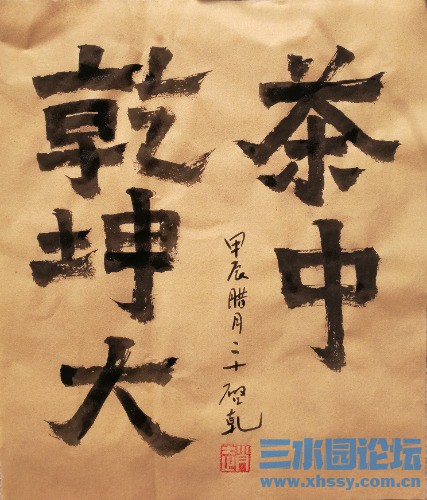 茶中
乾坤大
甲辰腊月二十启乾
三水园论坛
www.xhssy.com.cn